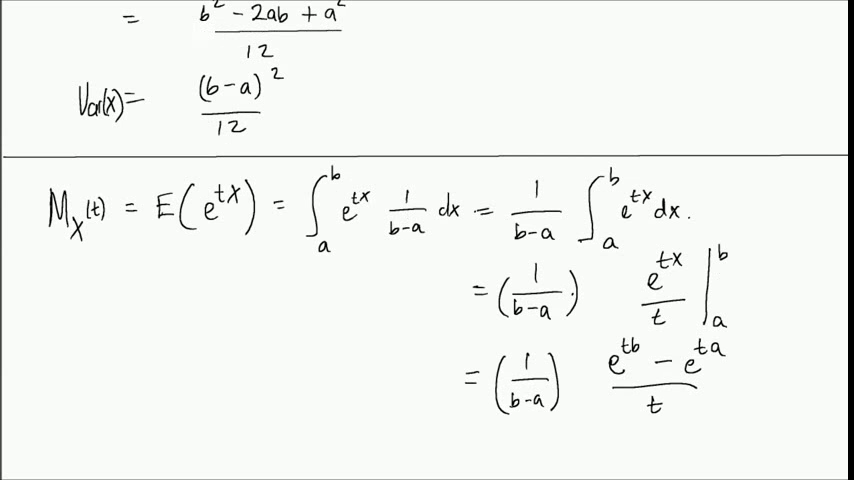 = b² - 2ab + a² / 12
Var(x) = (b-a)² / 12
M_X(t) = E(e^{tX}) = ∫_a^b e^{tx} 1/(b-a) dx = 1/(b-a) ∫_a^b e^{tx} dx.
= (1/(b-a)) · e^{tx}/t |_a^b
= (1/(b-a)) (e^{tb} - e^{ta})/t